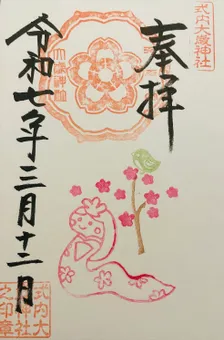 式内大歳神社
奉拝
令和七年三月十二月
式内大
神社
之印章